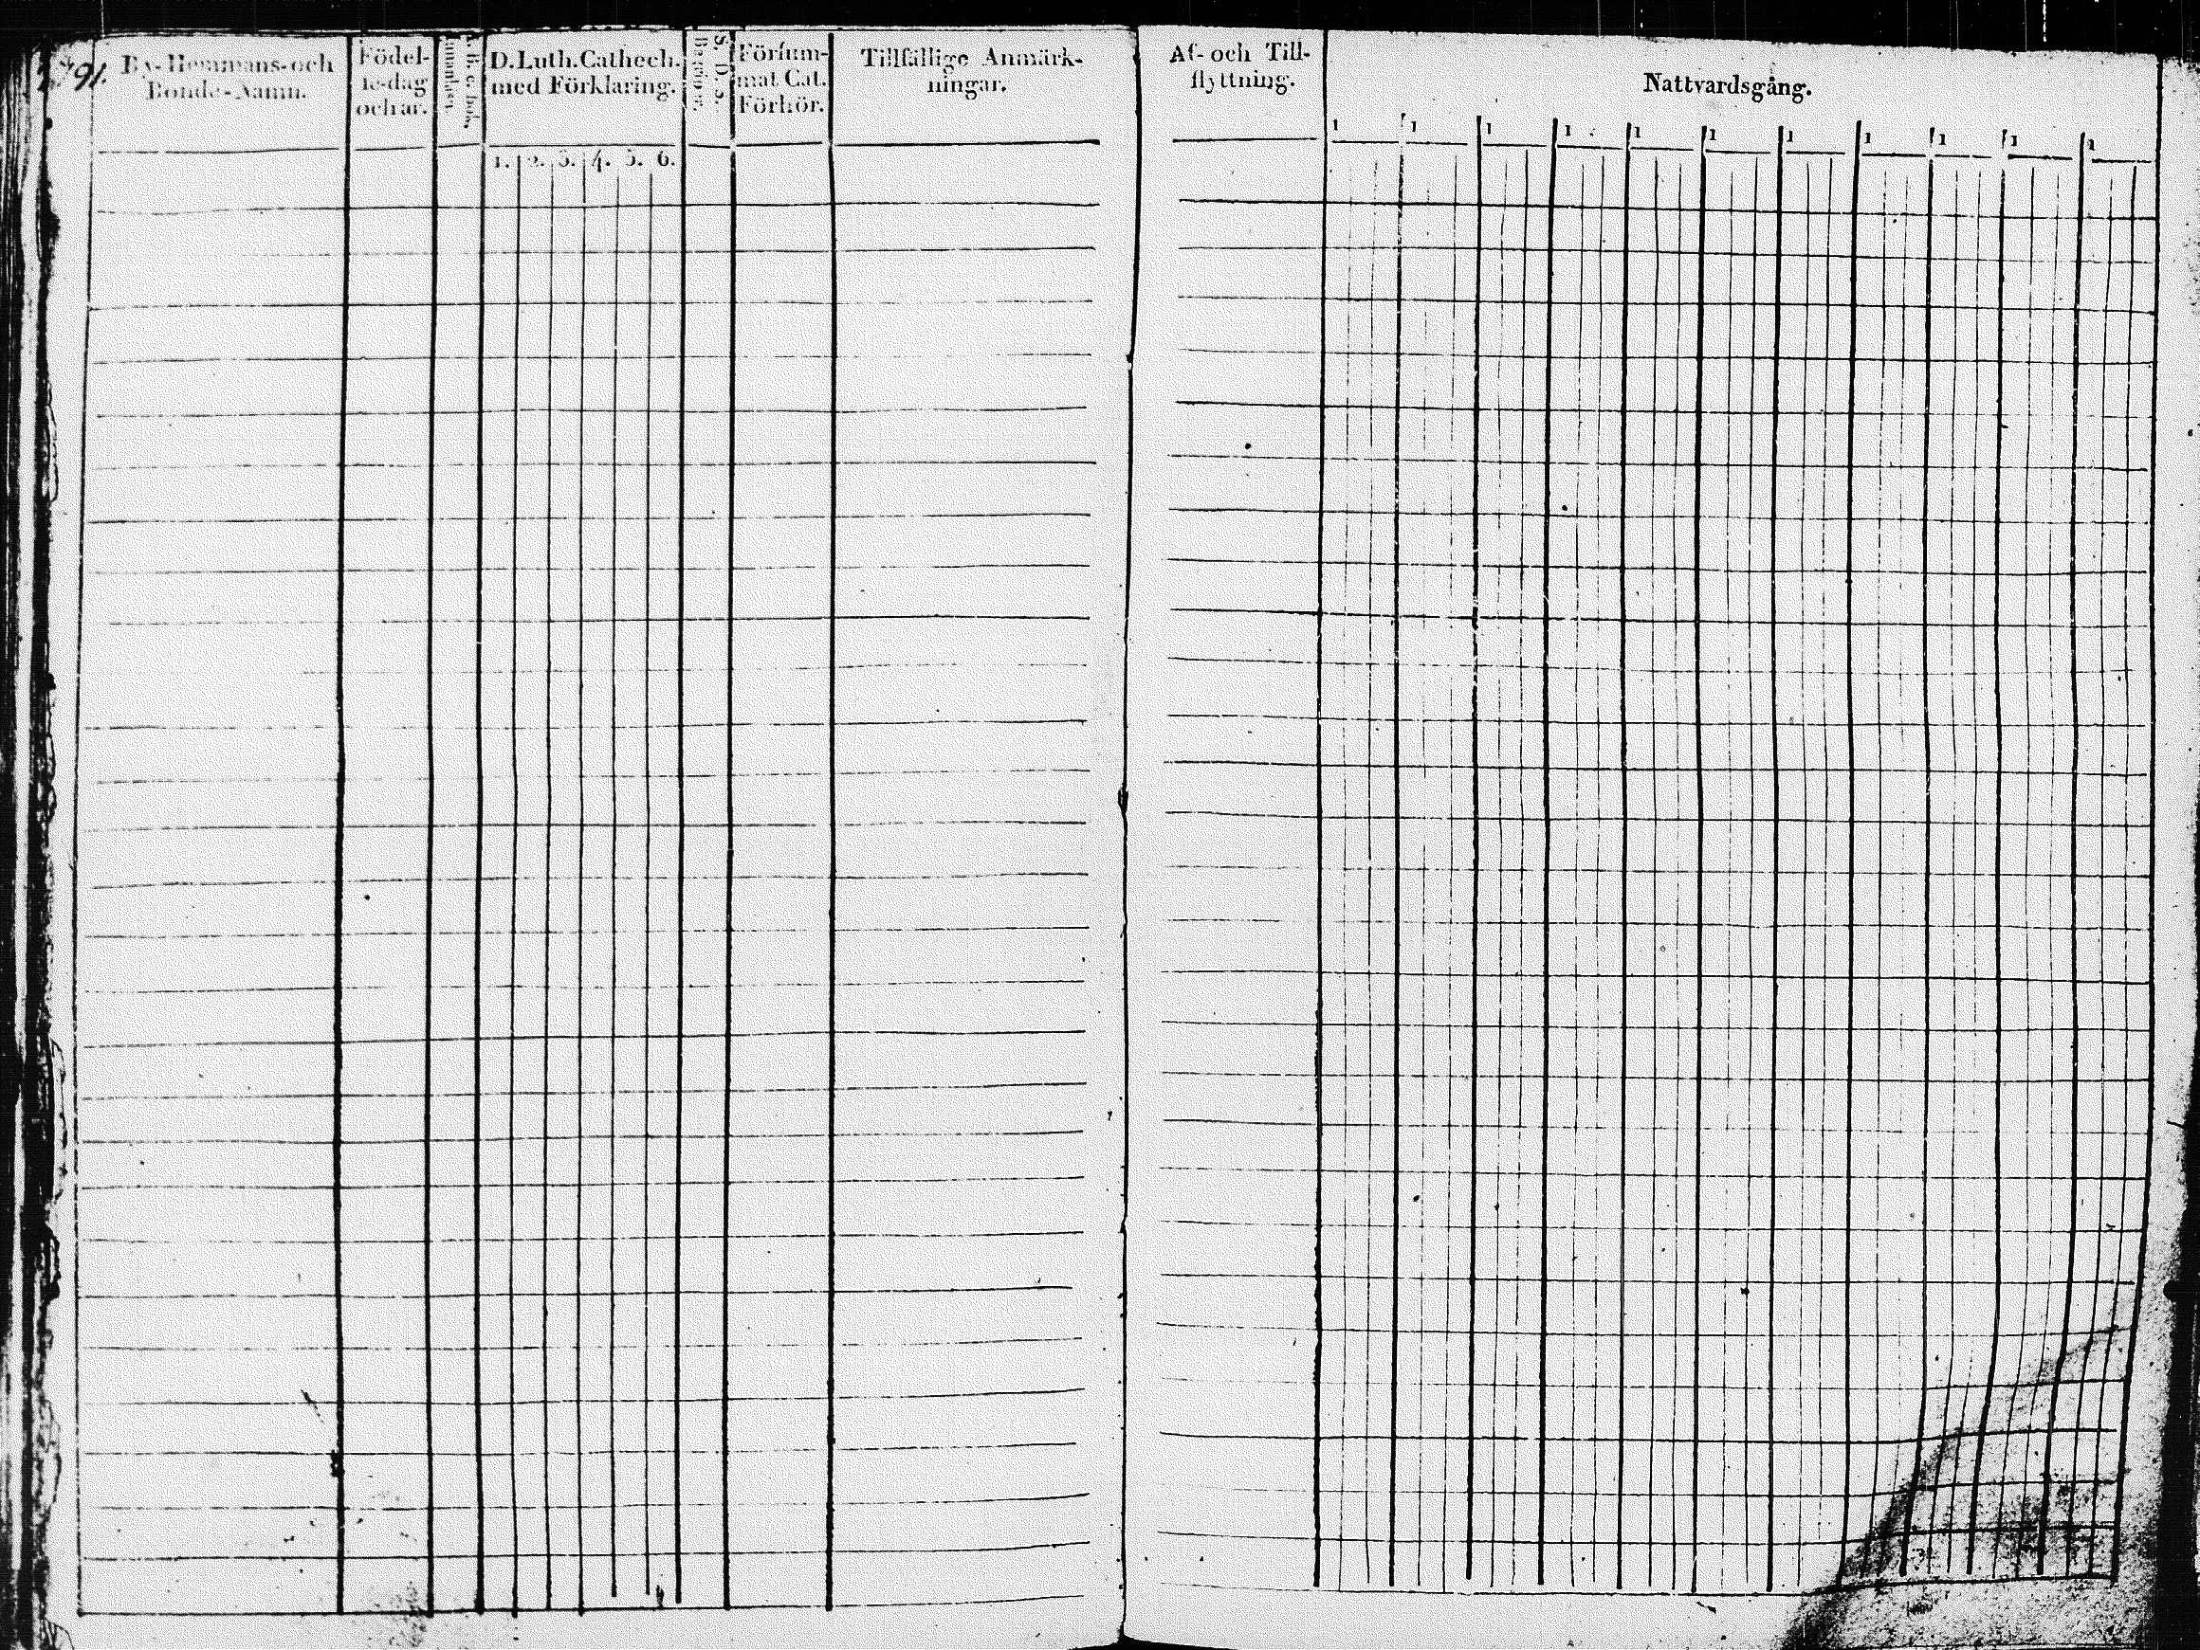 91.
By- Hemmans- och
Bonde-Namn.
Födel-
se-dag
och år.
D. Luth. Cathech.
med Förklaring.
1. 2. 3. 4. 5. 6.
S. D. S.
Försum-
mat Cat.
Förhör.
Tillfällige Anmärk-
ningar.
Af- och Till-
flyttning.
Nattvardsgång.
1 1 1 1 1 1 1 1 1 1 1